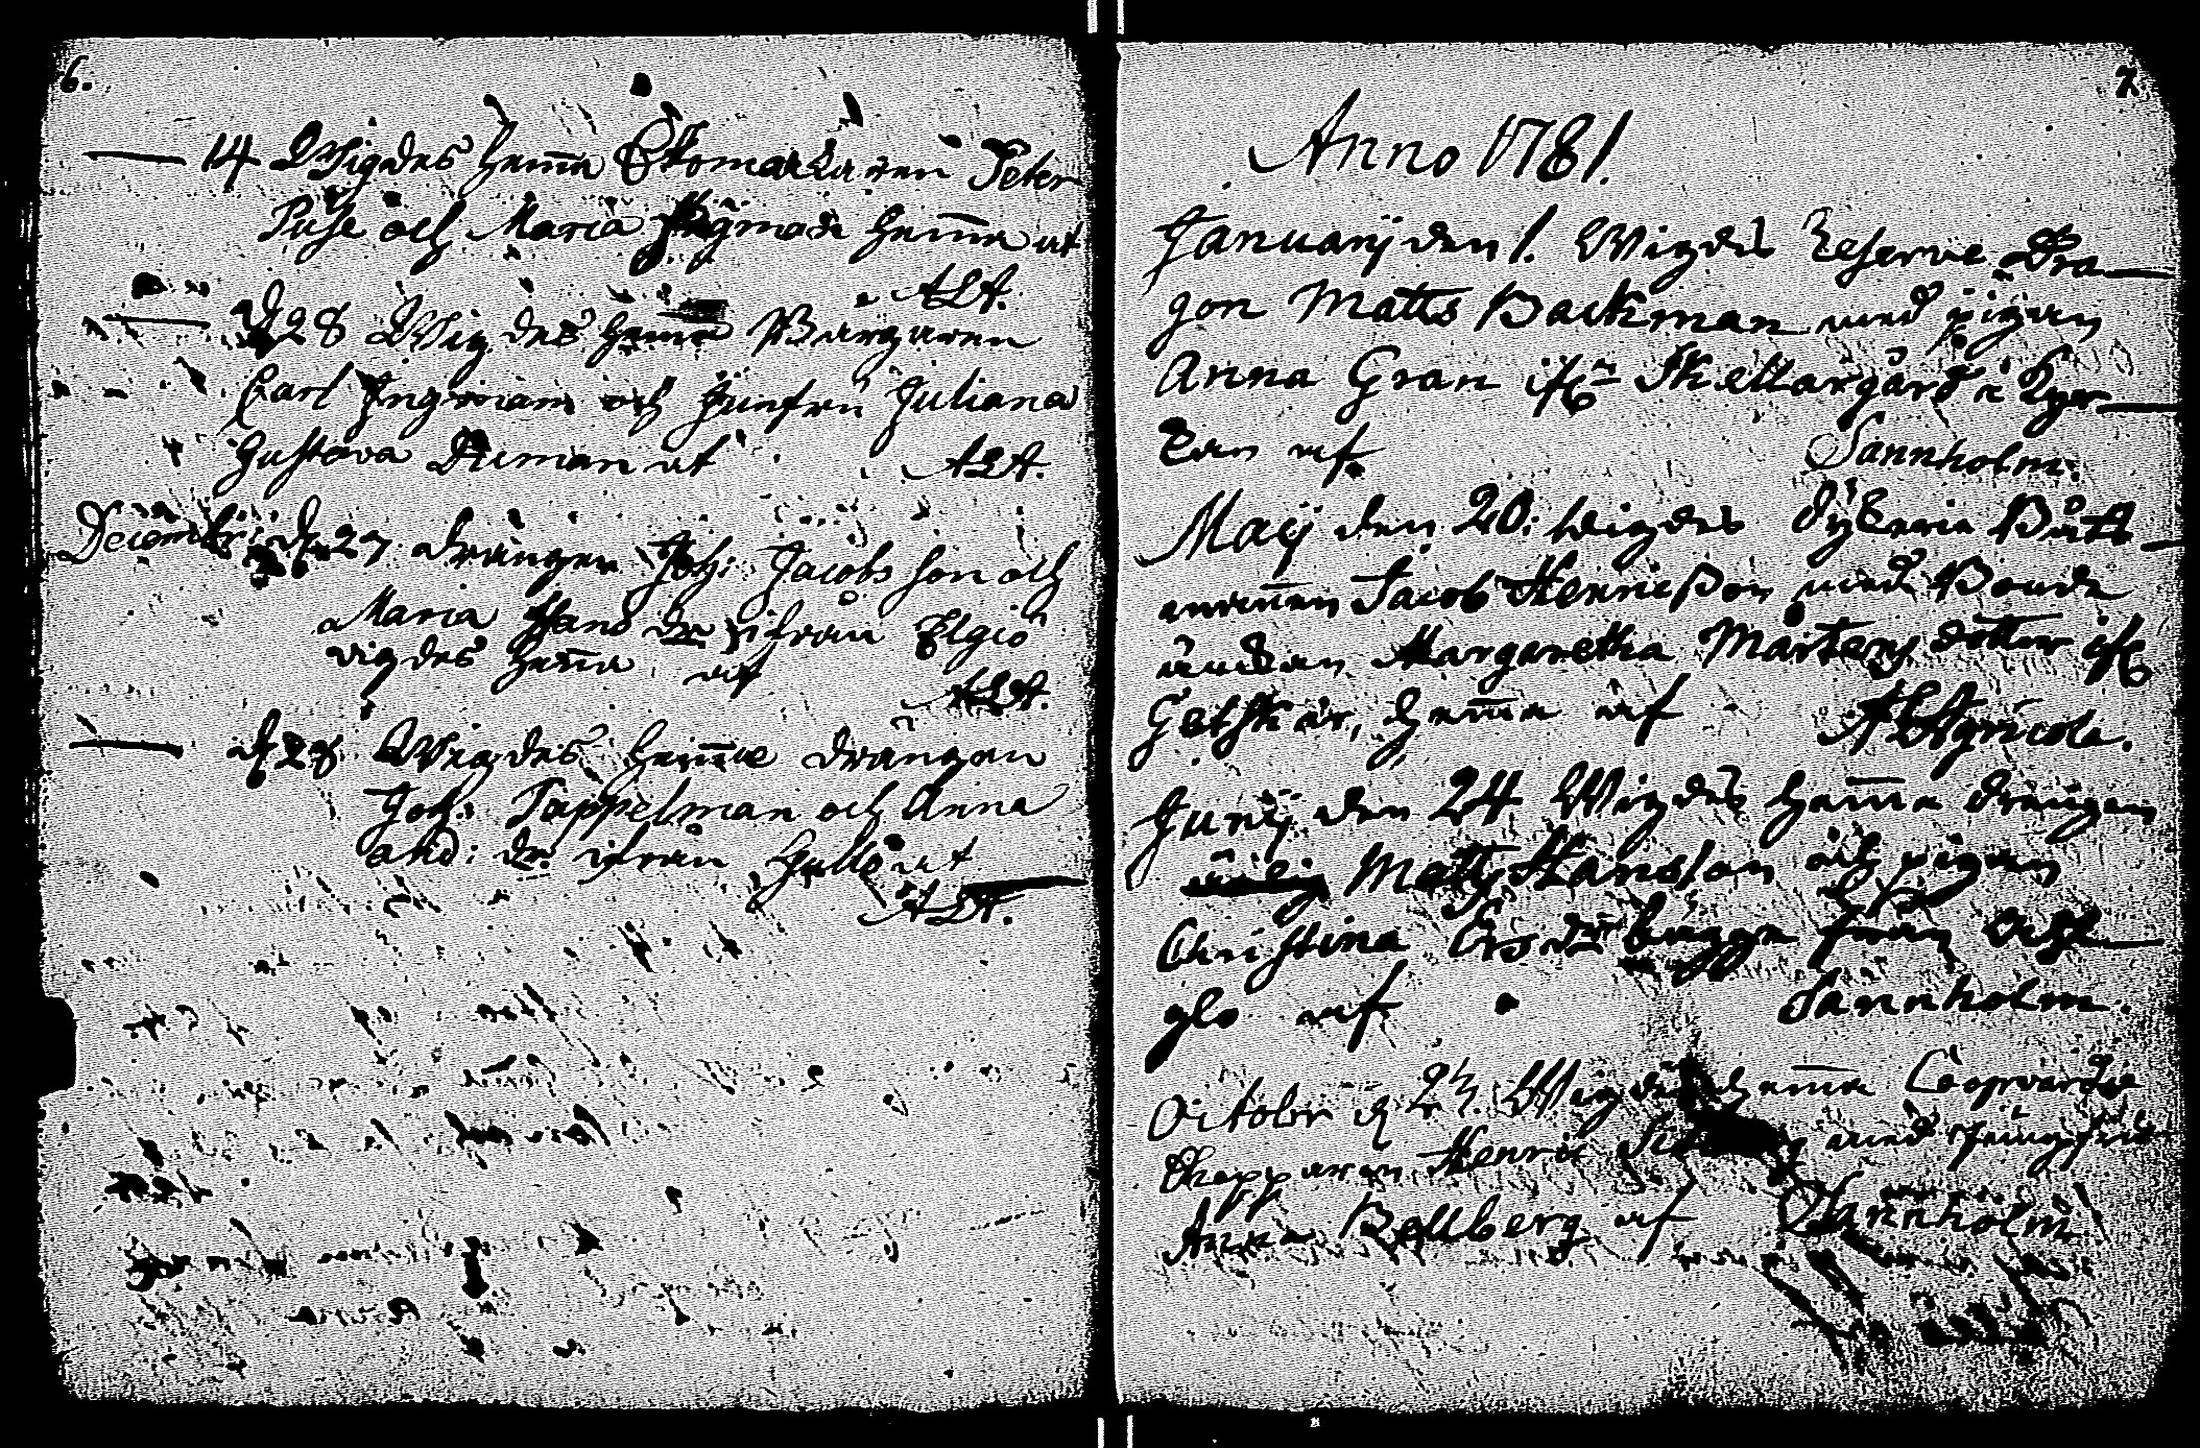 6.
14 Wigdes hem̄a Skomakaren Peter
Puse och Maria hem̄a af
A L A.
d 28 Wigdes hem̄a Borgaren
Carl Ingman och Junfru Juliana
Gustava Duman af A L A.
Decembr: d. 27 drängen Joh: Jacobs son och
Maria Hans dr ifrån Elgiö
vigdes hem̄a af
A L A.
d 28. Wigdes hem̄a drängen
Joh: Tappelman och Anna
And: dr: ifrån Hallö af
A L A.
7.
Anno 1781.
Januarij den 1. Wigdes Reserve Dra
gon Matts Backman med pigan
Anna Gran ifn Skeltargård i Kyr
af Sannholm.
Maij den 20. wigdes Båtz
Jacob Henricsson med Bonde
änckan Margaretha Mårtens dotter ifr
Getskär, hem̄a af A L Agricola.
Junij den 24 Wigdes hem̄a drängen
Matts Hansson och pigan
Christina Ers dr Bugge från Öist
glo af Sannholm.
October d 23. Wigdes hem̄a Coopvardie
Skepparen Henric med Jungfru
Anna Bellberg af Sannholm